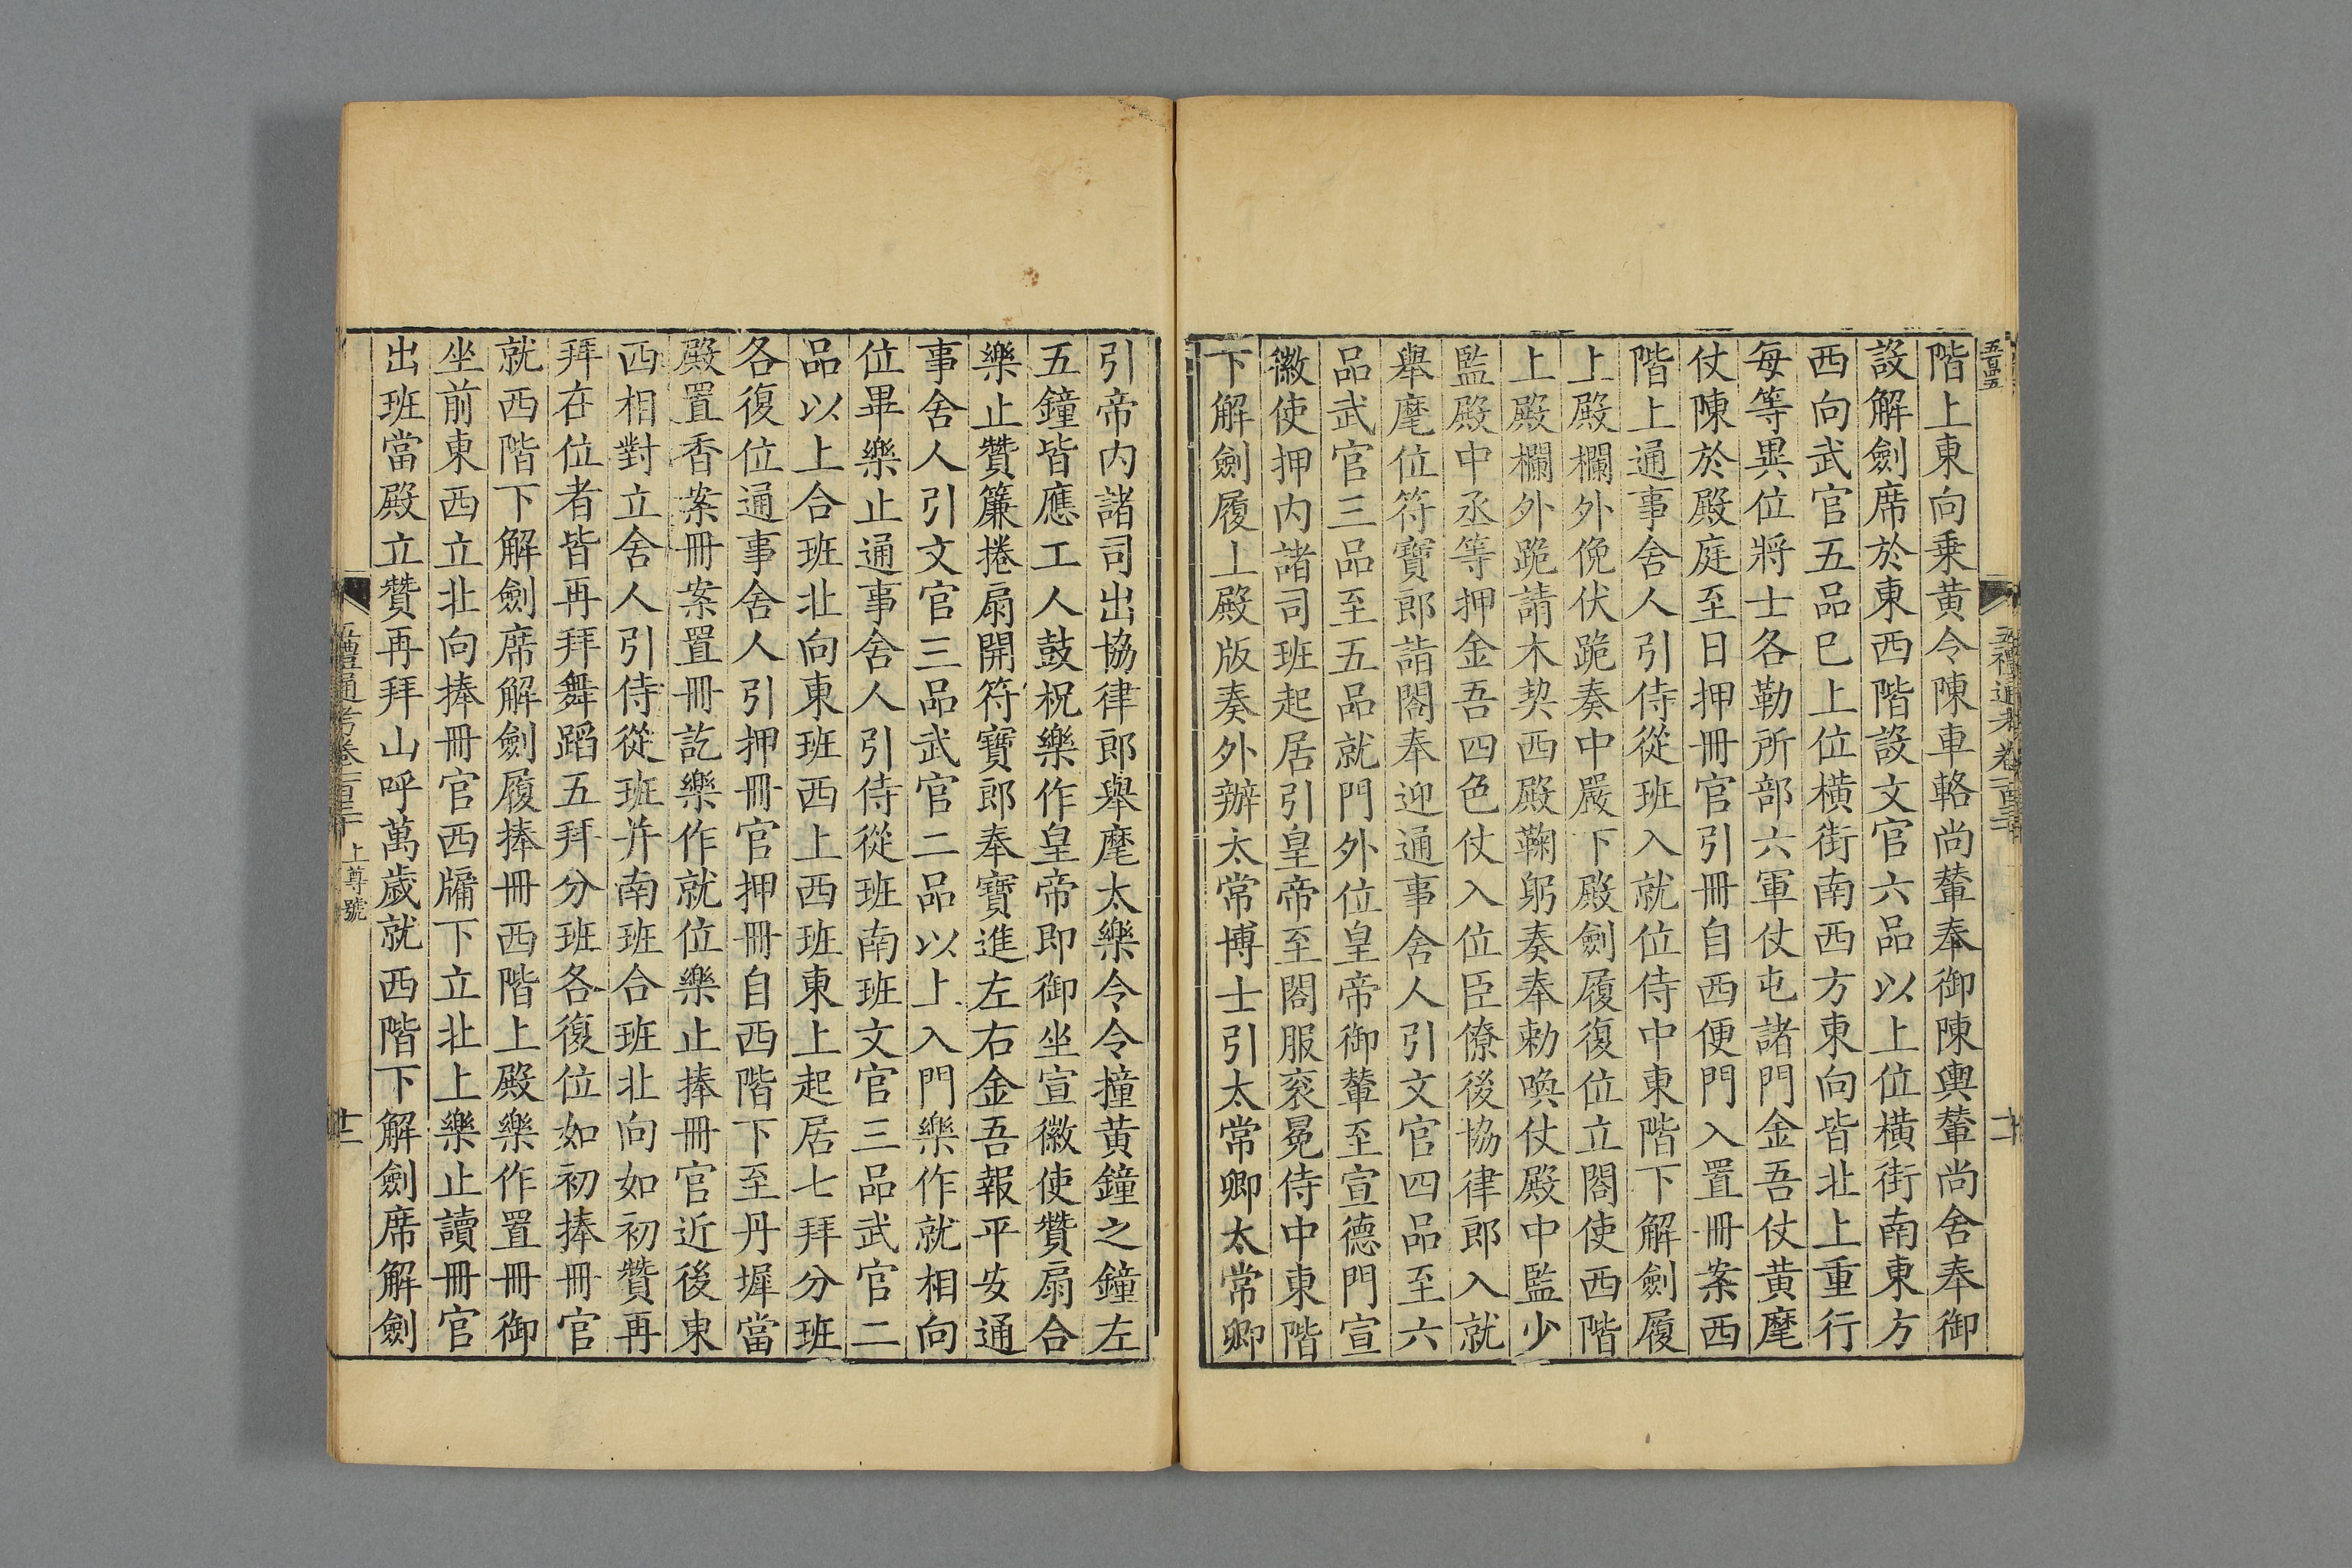 五百四五
五禮通考卷一百三十
階上東向乗黄令陳車輅尚輦奉御陳輿輦尚舍奉御
設解劍席於東西階設文官六品以上位橫街南東方
西向武官五品已上位橫街南西方東向皆北上重行
每等異位將士各勒所部六軍仗屯諸門金吾仗黄麾
仗陳於殿庭至日押冊官引冊自西便門入置冊案西
階上通事舍人引侍從班入就位侍中東階下解劍履
上殿欄外俛伏跪奏中嚴下殿劍履復位立閤使西階
上殿欄外跪請木契西殿鞠躬奏奉勅喚仗殿中監少
監殿中丞等押金吾四色仗入位臣僚後協律郎入就
舉麾位符寶郎詣閤奉迎通事舍人引文官四品至六
品武官三品至五品就門外位皇帝御輦至宣德門宣
徽使押内諸司班起居引皇帝至閤服衮冕侍中東階
下解劍履上殿版奏外辦太常博士引太常卿太常卿
引帝内諸司出協律郎舉麾太樂令令撞黄鐘之鐘左
五鐘皆應工人鼓柷樂作皇帝即御坐宣徽使贊扇合
樂止贊簾捲扇開符寶郎奉寶進左右金吾報平安通
事舍人引文官三品武官二品以上入門樂作就相向
位畢樂止通事舍人引侍從班南班文官三品武官二
品以上合班北向東班西上西班東上起居七拜分班
各復位通事舍人引押冊官押冊自西階下至丹墀當
殿置香案冊案置冊訖樂作就位樂止捧冊官近後東
西相對立舍人引侍從班并南班合班北向如初贊再
拜在位者皆再拜舞蹈五拜分班各復位如初捧冊官
就西階下解劍席解劍履捧冊西階上殿樂作置冊御
坐前東西立北向捧冊官西牗下立北上樂止讀冊官
出班當殿立贊再拜山呼萬歲就西階下解劍席解劍
五禮通考卷一百三十 上尊號
十二